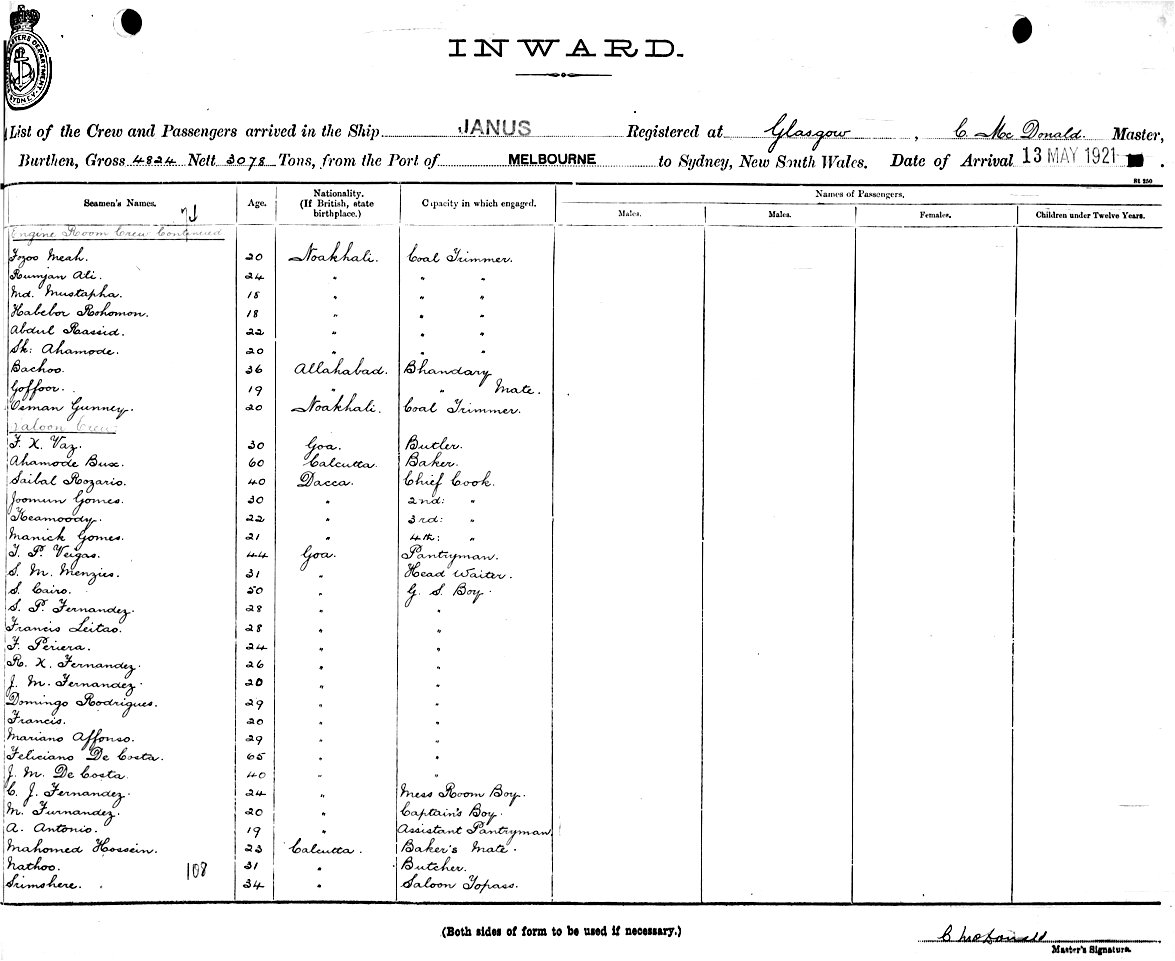 INWARD.
List of the Crew and Passengers arrived in the Ship JANUS Registered at Glasgow, C. Mc Donald. Master,
Burthen, Gross 4824 Nett 3078 Tons, from the Port of MELBOURNE to Sydney, New South Wales. Date of Arrival 13 MAY 1921.
Seamen's Names. Age. Nationality. (If British, state birthplace.) Capacity in which engaged. Names of Passengers.
Males. Males. Females. Children under Twelve Years.
Engine Room Crew Continued
Fozoo Meah. 20 Noakhali. Coal Trimmer.
Rumjan Ali. 24 " " "
Md. Mustapha. 18 " " "
Habebor Rohomon. 18 " " "
Abdul Rassid. 22 " " "
Sk: Ahamode. 20 " " "
Bachoo. 36 Allahabad. Bhandary
Goffoor. 19 " " Mate.
Osman Gunney. 20 Noakhali. Coal Trimmer.
Saloon Crew
F. X. Vaz. 30 Goa. Butler.
Ahamode Bux. 60 Calcutta. Baker.
Saibal Rozario. 40 Dacca. Chief Cook.
Joomun Gomes. 30 " 2nd: "
Keamoody. 22 " 3rd: "
Manick Gomes. 21 " 4th: "
T. P. Veigas. 44 Goa. Pantryman.
S. M. Menzies. 31 " Head Waiter.
S. Cairo. 50 " G. S. Boy.
S. P. Fernandez. 28 " "
Francis Leitao. 28 " "
F. Periera. 24 " "
R. X. Fernandez. 26 " "
J. M. Fernandez. 20 " "
Domingo Rodrigues. 29 " "
Francis. 20 " "
Mariano Affonso. 29 " "
Feliciano De Costa. 65 " "
J. M. De Costa. 40 " "
C. J. Fernandez. 24 " Mess Room Boy.
M. Furnandez. 20 " Captain's Boy.
A. Antonio. 19 " Assistant Pantryman.
Mahomed Hossein. 23 Calcutta. Baker's Mate.
Nathoo. 108 31 " Butcher.
Srimshere. 34 " Saloon Topass.
(Both sides of form to be used if necessary.)
C McDonald
Master's Signature.